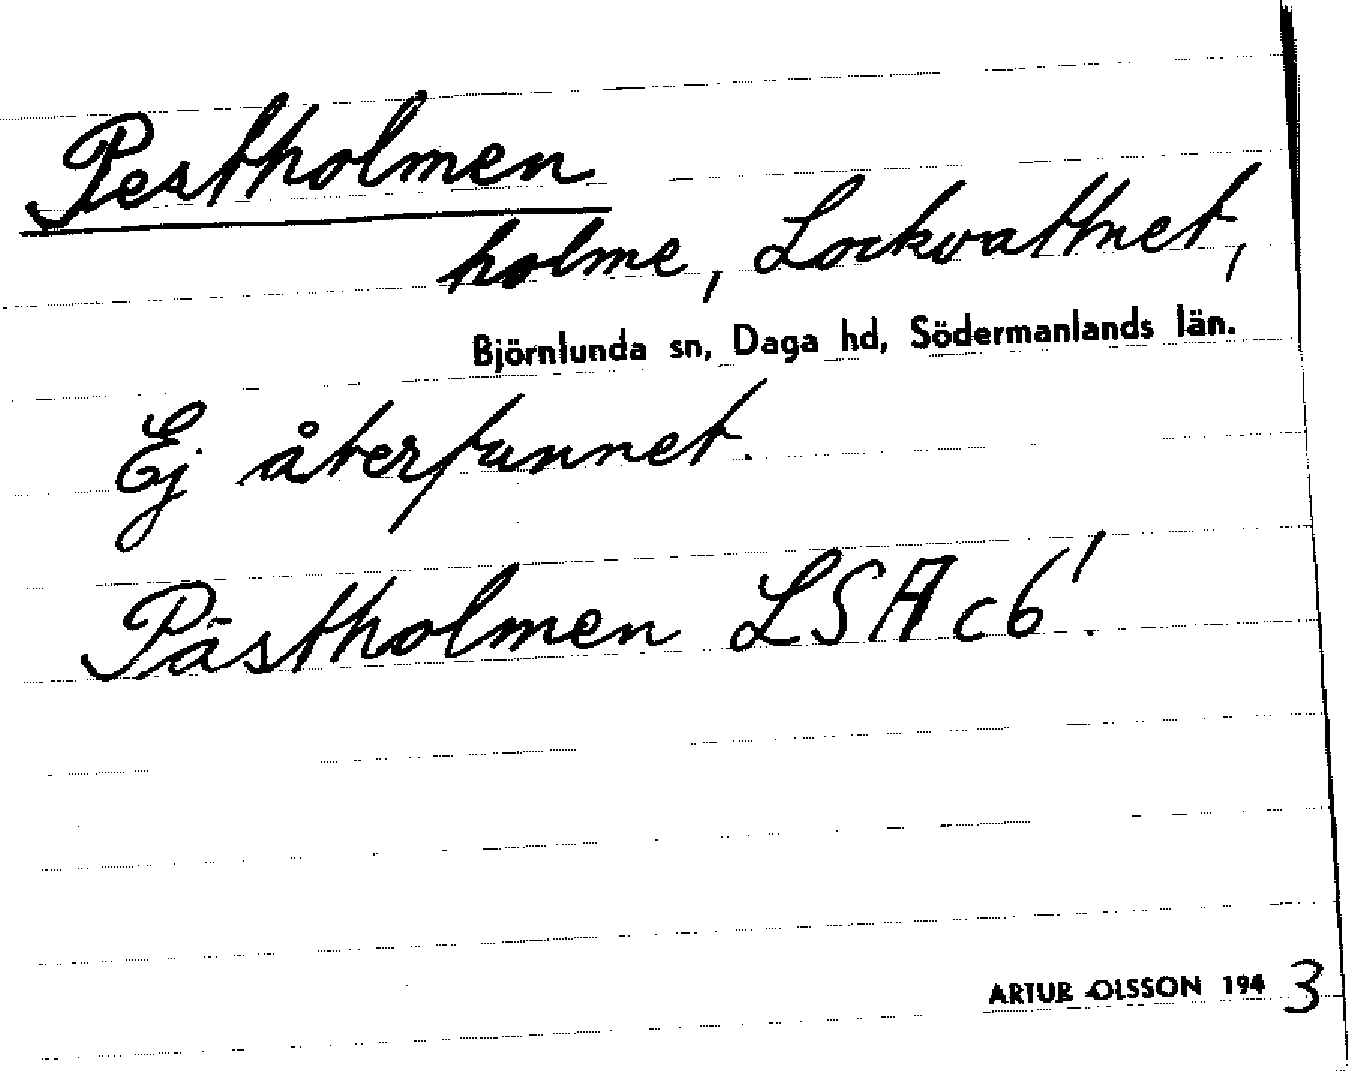 Pestholmen
holme, Lockvattnet,
Björnlunda sn, Daga hd, Södermanlands län.
Ej återfunnet.
Pästholmen LSA c6!
ARTUR OLSSON 1943